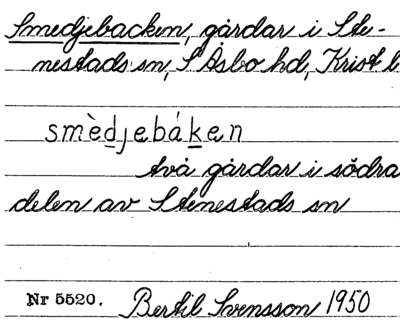 Smedjebacken, gårdar i Ste-
nestads sn, S Åsbo hd, Krist l.
smèdjebáken
två gårdar i södra
delen av Stenestads sn
Nr 5520. Bertil Svensson 1950